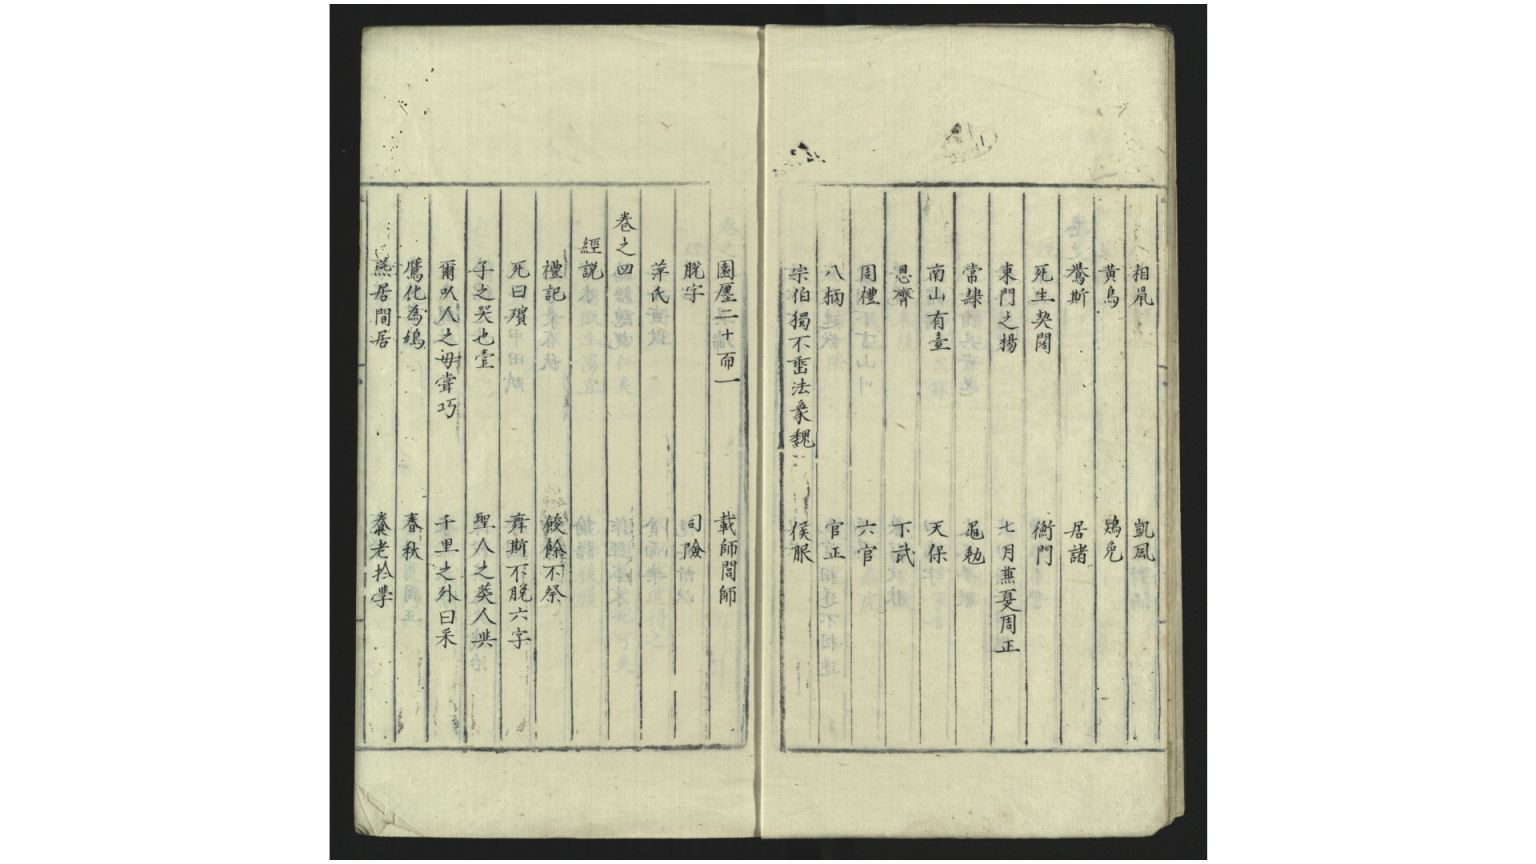 相鼠 凱風
黃鳥 鴇兔
鷽斯 居諸
死生契闊 衡門
東門之楊 七月蕪夏周正
常隷 黽勉
南山有臺 天保
思齊 下武
周禮 六官
八柄 官正
宗伯獨不垂法象魏 侯服
園廛二十而一 載師閭師
脫字 司險
萍氏
卷之四
經說
禮記 餕餘不祭
死曰殯 舞斯不脫六字
子之哭也壹 聖人之葬人與
爾以人之母嘗巧 千里之外曰采
鷹化為鳩 春秋
燕居閒居 養老於學